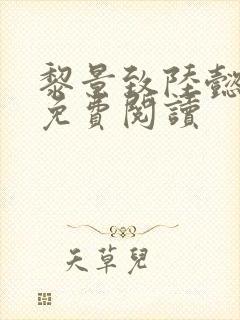 黎景致陸懿
免費閱讀
天草兒